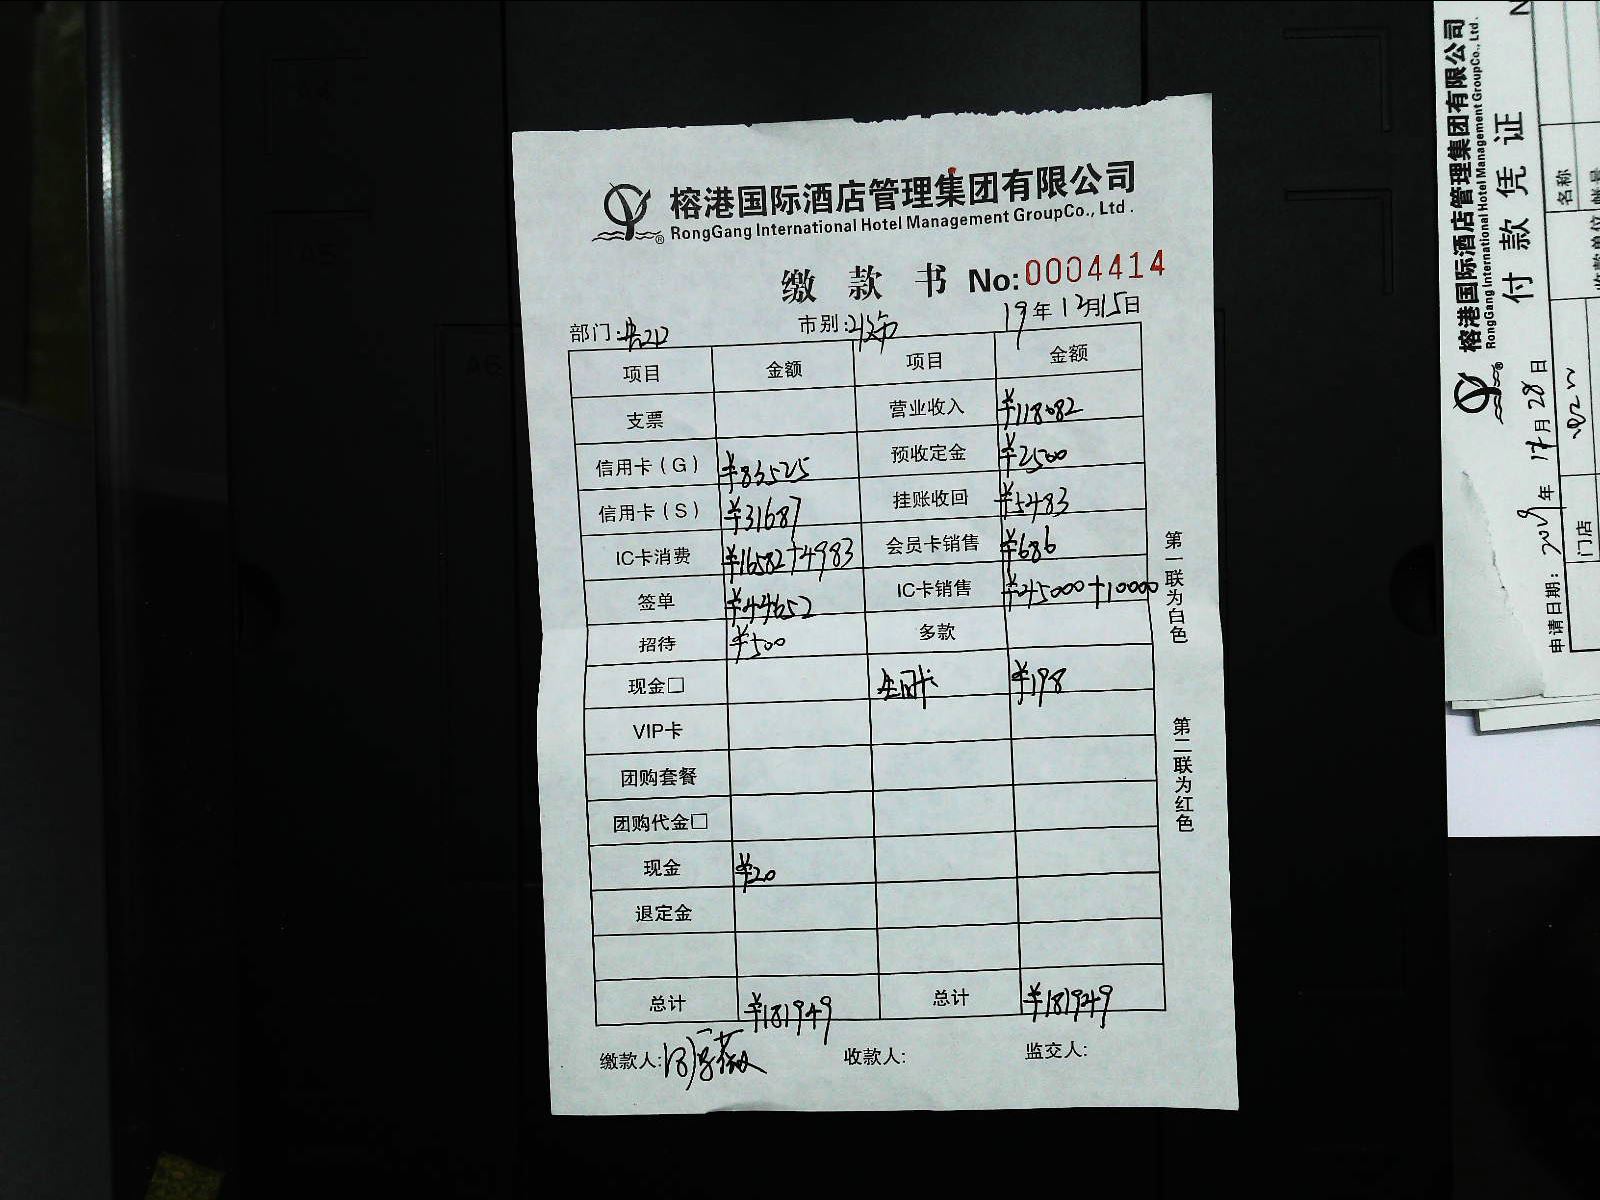 榕港国际酒店管理集团有限公司
RongGang International Hotel Management GroupCo., Ltd.
缴款书 No:0004414
部门: 市别: 19年12月15日
项目 金额 项目 金额
支票 营业收入 ¥118082
信用卡(G) ¥83525 预收定金 ¥2500
信用卡(S) ¥31687 挂账收回 ¥5483
IC卡消费 ¥16582+4983 会员卡销售 ¥686
签单 ¥44652 IC卡销售 ¥45000+10000
招待 ¥500 多款
现金□ ¥198
VIP卡
团购套餐
团购代金□
现金 ¥20
退定金
总计 ¥181949 总计 ¥181949
缴款人: 收款人: 监交人:
第一联为白色
第二联为红色
榕港国际酒店管理集团有限公司
RongGang International Hotel Management GroupCo., Ltd.
付款凭证
申请日期: 2019年12月28日
门店
名称